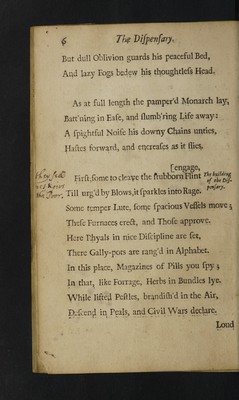 6 The Diſpenſary.
But dull Oblivion guards his peaceful Bed,
And lazy Fogs bedew his thoughtleſs Head.
As at full length the pamper'd Monarch lay,
Batt'ning in Eaſe, and ſlumb'ring Life away:
A ſpightful Noiſe his downy Chains unties,
Haſtes forward, and encreaſes as it flies.
[engage,
Firſt, ſome to cleave the ſtubborn Flint
The building of the Diſ-penſary.
Till urg'd by Blows, it ſparkles into Rage.
Some temper Lute, ſome ſpacious Veſſels move;
Theſe Furnaces erect, and Thoſe approve.
Here Phyals in nice Diſcipline are ſet,
There Gally-pots are rang'd in Alphabet.
In this place, Magazines of Pills you ſpy;
In that, like Forrage, Herbs in Bundles lye.
While lifted Peſtles, brandiſh'd in the Air,
Deſcend in Peals, and Civil Wars declare.
Loud